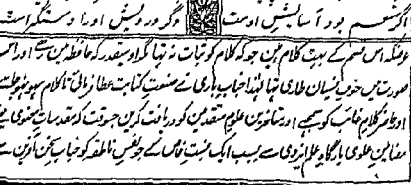 اگر شعیم بود آسایش اوست وگر درویش اورا دستگیر است
غرضکہ اس قسم کے بہت کلام ہین چونکہ کلام کو ثبات نہ تھا مگر اوسقدر کہ حافظہ مین رہے اور اس
صورت مین خوف نسیان طاری تھا لہذا جناب باری نے صنعت کتابت عطا فرمائی تا کلام سہو نہو جائے
اور حاضر کلام غائب کو سمجھے اور متاخرین علوم متقدمین کو دریافت کرین جسوقت کہ مقدمات معنوی
مضامین علوی بارگاہ علم ایزدی سے بسبب ایک نسبت خاص کے جو نفس ناطقہ کو جناب سخن آفرین سے